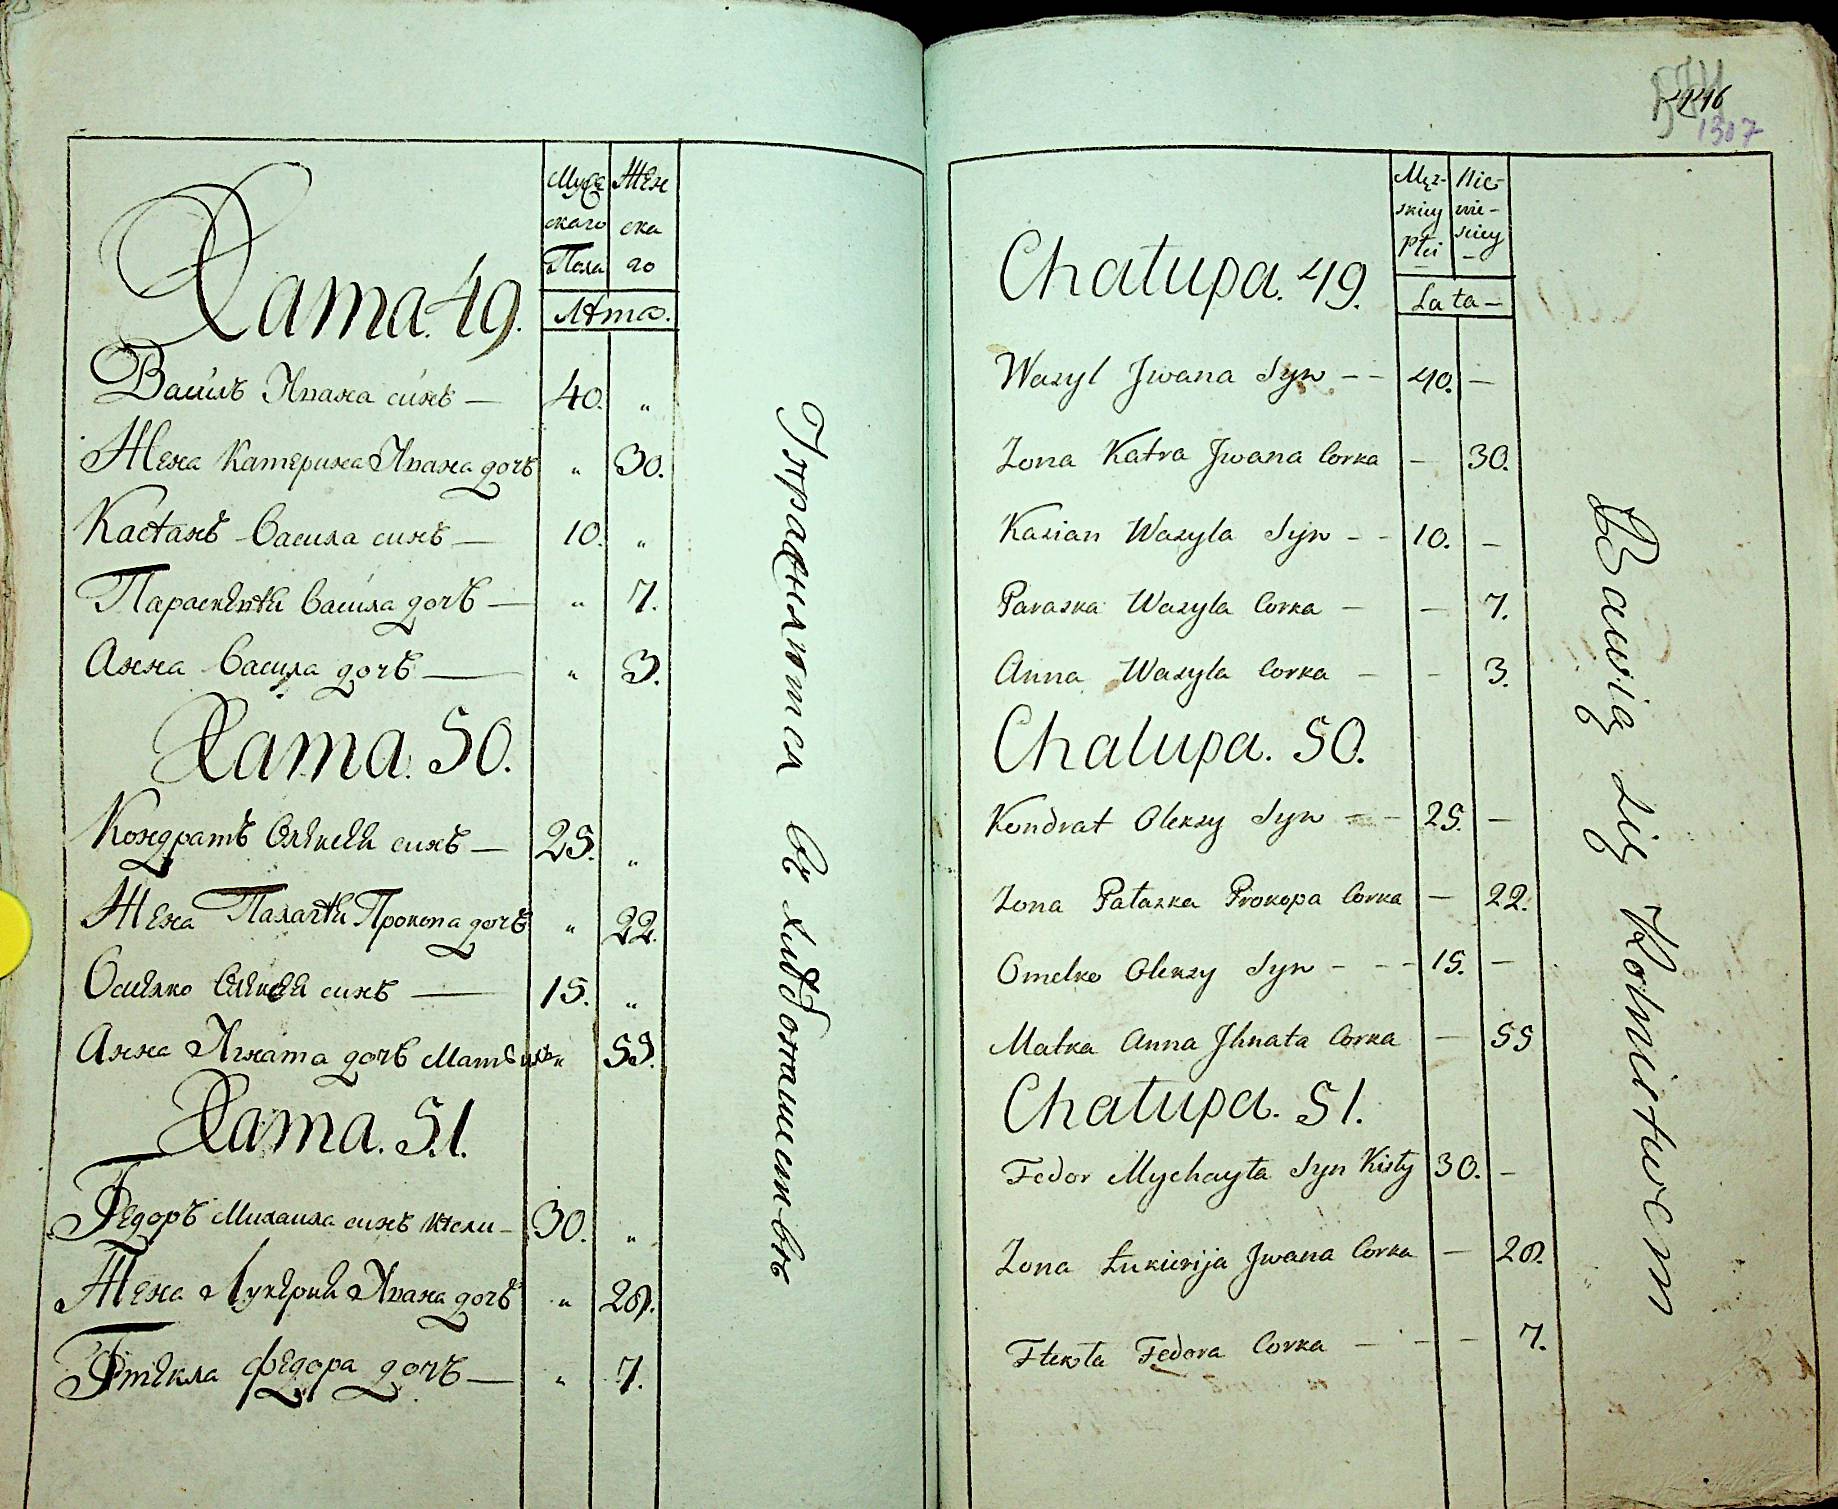 Мужескаго Пола
Женскаго
Лѣта.
Хата. 49.
Василъ Ивана синъ — 40. „
Жена Катерина Ивана дочъ „ 30.
Касіанъ Васила синъ — 10. „
Параскевія Васила дочъ — „ 7.
Анна Васила дочъ — „ 3.
Хата. 50.
Кондратъ Олексія синъ — 25. „
Жена Палагія Прокопа дочъ „ 22.
Омелко Олексія синъ — 15. „
Анна Игната дочъ Мать ихъ „ 55.
Хата. 51.
Федоръ Михаила синъ — 30. „
Жена Лукерия Ивана дочъ „ 28.
Фтекла Федора дочъ — „ 7.
Упражняются въ хлѣбопашествѣ
1307
Męzskiey Płci
Niewieskiey
Lata —
Chałupa. 49.
Wasyl Jwana Syn — — 40. —
Zona Katra Jwana Corka — 30.
Kasian Wasyla Syn — — 10. —
Paraska Wasyla Corka — — 7.
Anna Wasyla Corka — — 3.
Chałupa. 50.
Kondrat Olexsy Syn — — 25. —
Zona Pałaszka Prokopa Corka — 22.
Omelko Olexsy Syn — — — 15. —
Matka Anna Jhnata Corka — 55
Chałupa. 51.
Fedor Mychayła Syn Kisły 30. —
Zona Łukieryja Jwana Corka — 28.
Ftekła Fedora Corka — — — 7.
Bawią się Rolnictwem